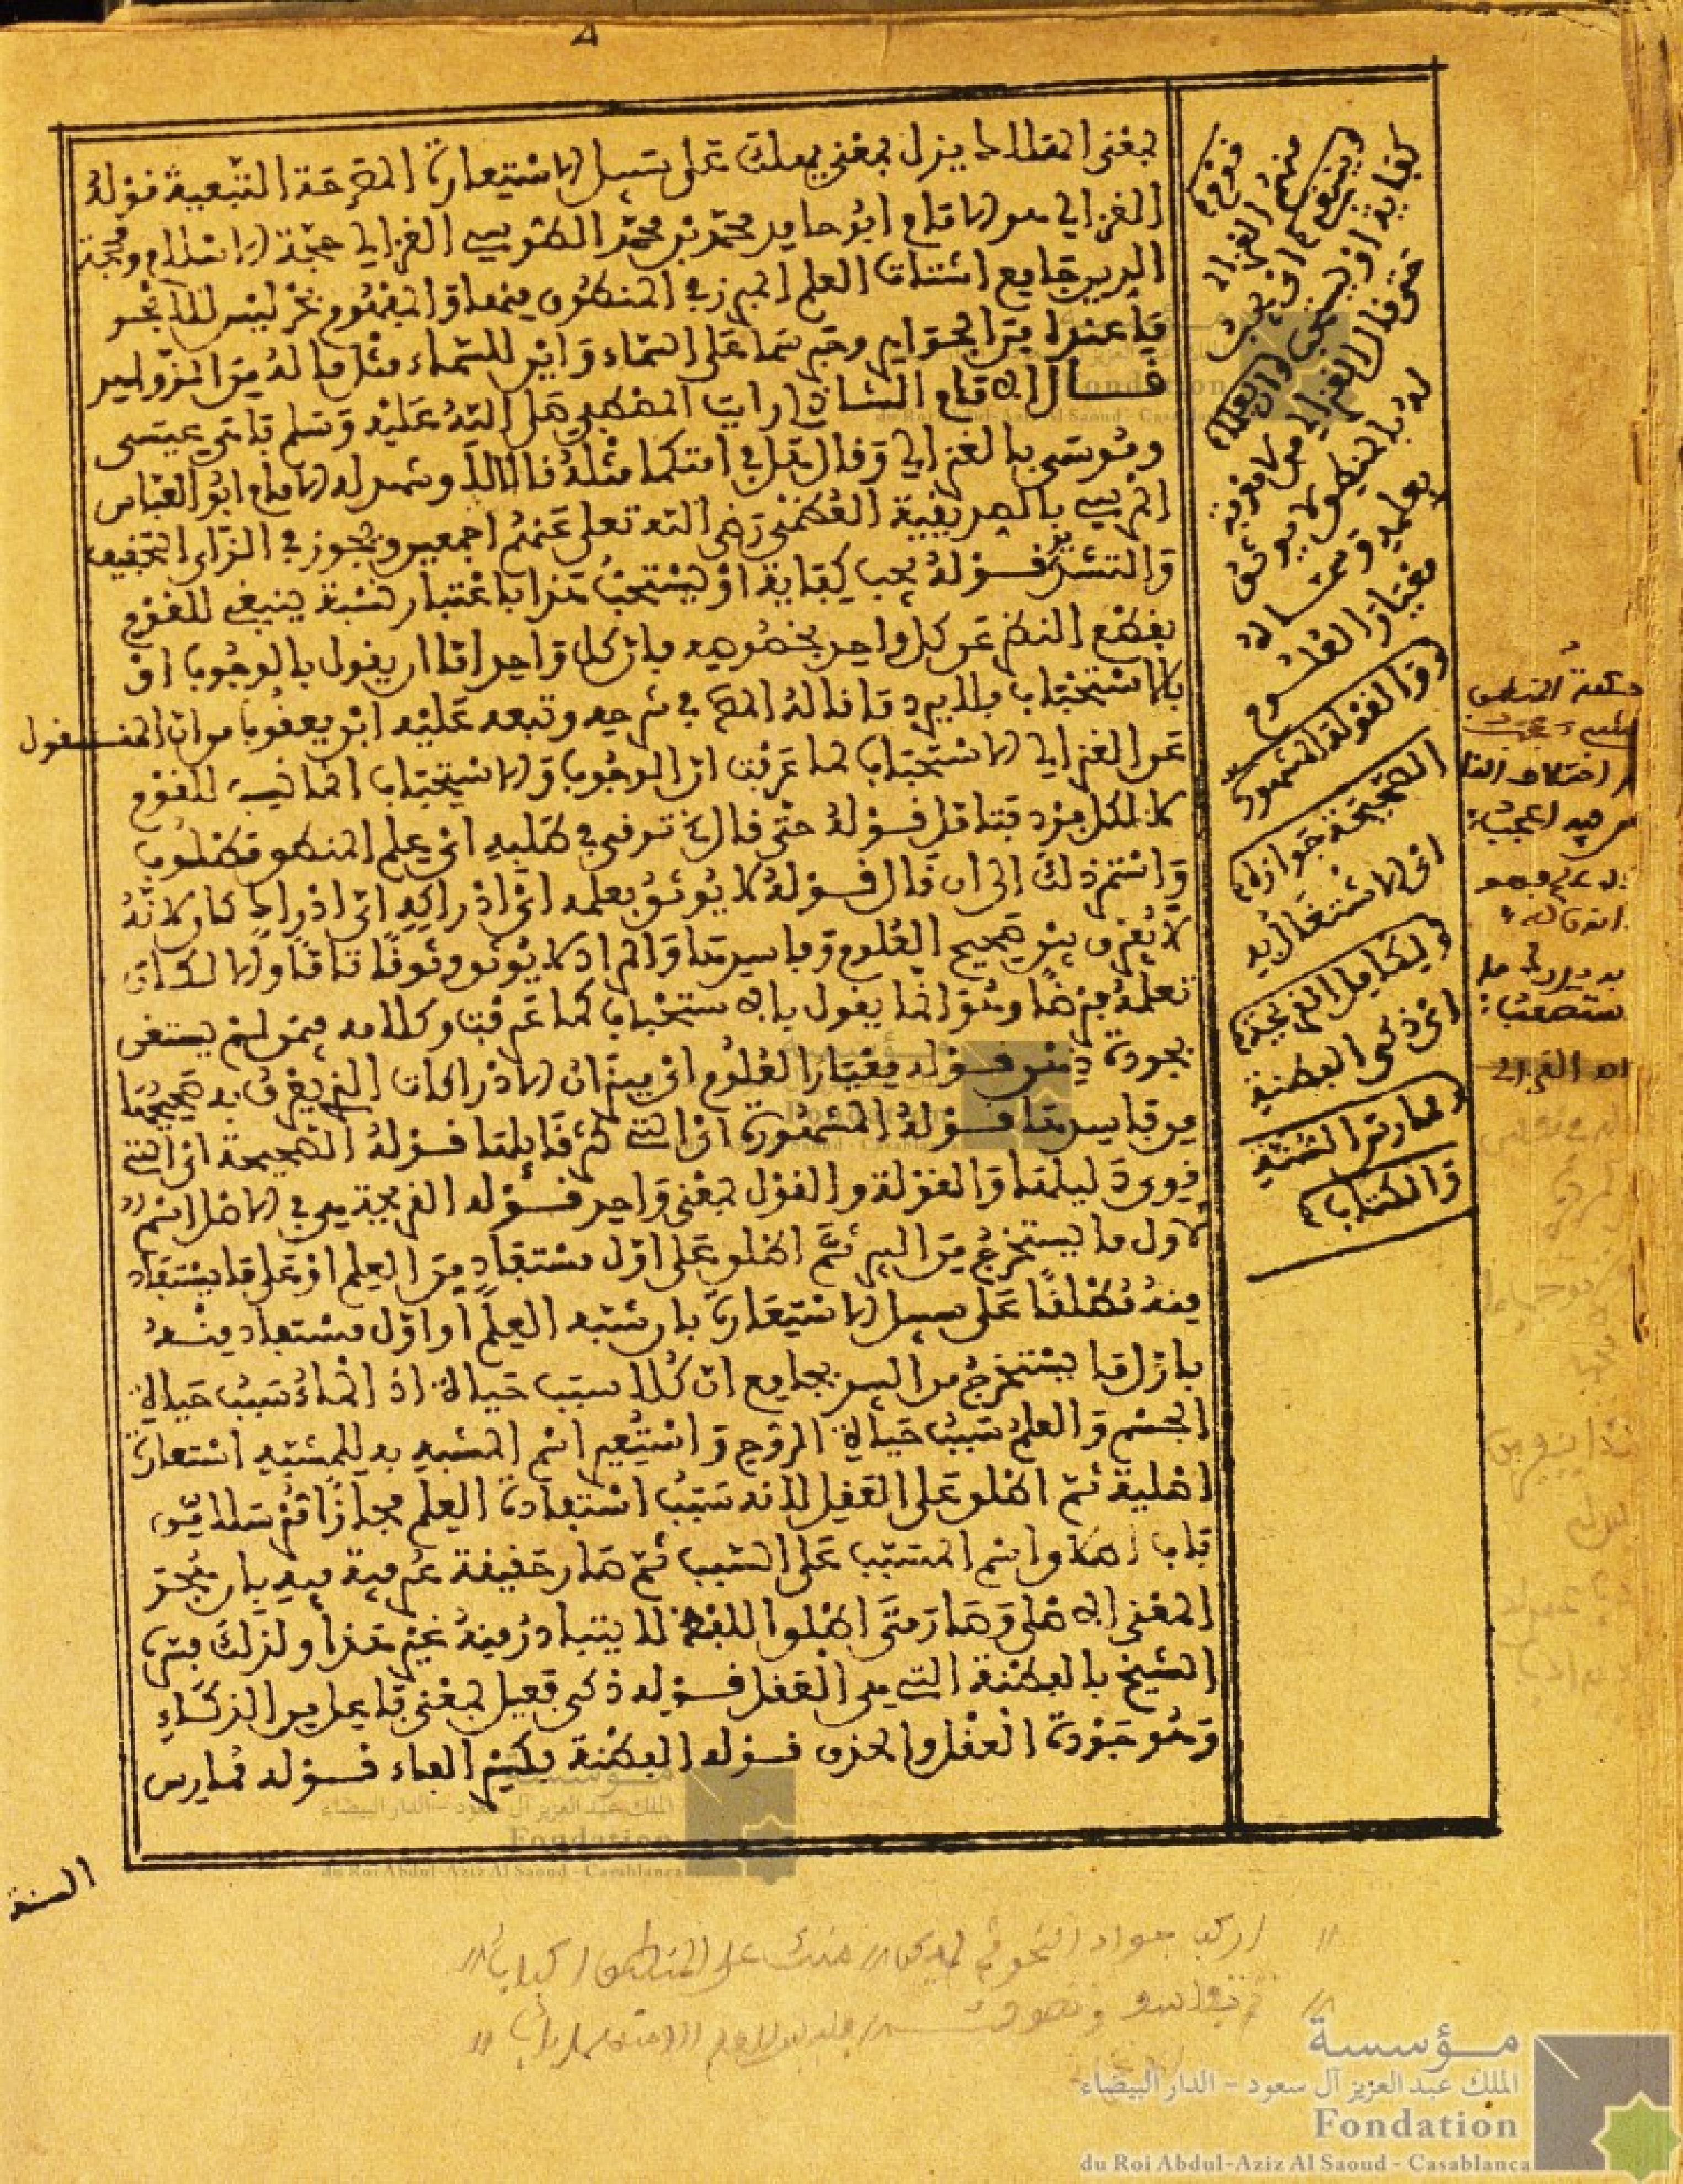 بمعنى المقال لما ينزل بمعنى يهلك على سبيل الاستعارة المصرحة التبعية قوله
الغزالي هو الامام ابو حامد محمد بن محمد الطوسي الغزالي حجة الاسلام ومحجة
الدين جامع اشتات العلم المبرز في المنطوق منها والمفهوم بحر ليس للبحر
ما عنده من الجواهر وحبر سما على السماء واين للسماء مثل ما له من الزواهر
قال الامام الشاذلي رايت المصطفى صلى الله عليه وسلم باهى عيسى
وموسى بالغزالي وقال هل في امتكما مثله قالا لا وشهد له الامام ابو العباس
المرسي بالصديقية العظمى رضي الله تعلى عنهم اجمعين ويجوز في الزاي التخفيف
والتشديد قوله يجب كفاية او يستحب هذا باعتبار نسبة ينبغي للقوم
بقطع النظر عن كل واحد بخصوصه فان كل واحد اما ان يقول بالوجوب او
بالاستحباب فلا يرد ما قاله المص في شرحه وتبعه عليه ابن يعقوب من ان المنقول
عن الغزالي الاستحباب لما عرفت ان الوجوب والاستحباب بالنسبة للقوم
لا لكل فرد فتامل قوله حتى قال الخ ترقى في طلبه اي علم المنطق مطلوب
واستمر ذلك الى ان قال قوله لا يوثق بعلمه اي ادراكه اي ادراك كان لانه
لا يفرق بين صحيح العلوم وفاسدها والمراد لا يوثق وثوقا تاما والا لكان
تعلمه فرضا وهو انما يقول بالاستحباب كما عرفت وكلامه فيمن لم يستغن
بجودة ذهن قوله معيار العلوم اي ميزان الادراكات الذي يعرف به صحيحها
من فاسدها قوله المشهورة اي التي كثر قائلها قوله الصحيحة اي التي
قوي دليلها والقولة والقول بمعنى واحد قوله القريحة هي في الاصل اسم
لاول ما يستخرج من البير ثم اطلق على اول مستفاد من العلم او على ما يستفاد
منه مطلقا على سبيل الاستعارة بان شبه العلم او اول مستفاد منه
باول ما يستخرج من البير بجامع ان كلا سبب حياة اذ الماء سبب حياة
الجسم والعلم سبب حياة الروح واستعير اسم المشبه به للمشبه استعارة
اصلية ثم اطلق على العقل لانه سبب استفادة العلم مجازا مرسلا من
باب اطلاق اسم المسبب على السبب ثم صار حقيقة عرفية فيه بان هجر
المعنى الاصلي وصار متى اطلق اللفظ لا يتبادر منه غير هذا ولذلك فسره
الشيخ بالفطنة التي هي العقل قوله ذكي فعيل بمعنى فاعل من الذكاء
وهو جودة العقل والحذق قوله الفطنة بكسر الفاء قوله ممارس
السنة
فقوله
منهم الغزالي
وينبغي اي يجب
كفاية او يستحب ان يعلما
حتى قال الغزالي من لا معرفة
له بالمنطق لا يوثق
بعلمه وسماه
معيار العلوم
والقولة المشهورة
الصحيحة جوازه
اي الاشتغال به
لكامل القريحة
اي ذكي الفطنة
ممارس السنة
والكتاب
مؤسسة
الملك عبد العزيز آل سعود - الدار البيضاء
Fondation
du Roi Abdul-Aziz Al Saoud - Casablanca